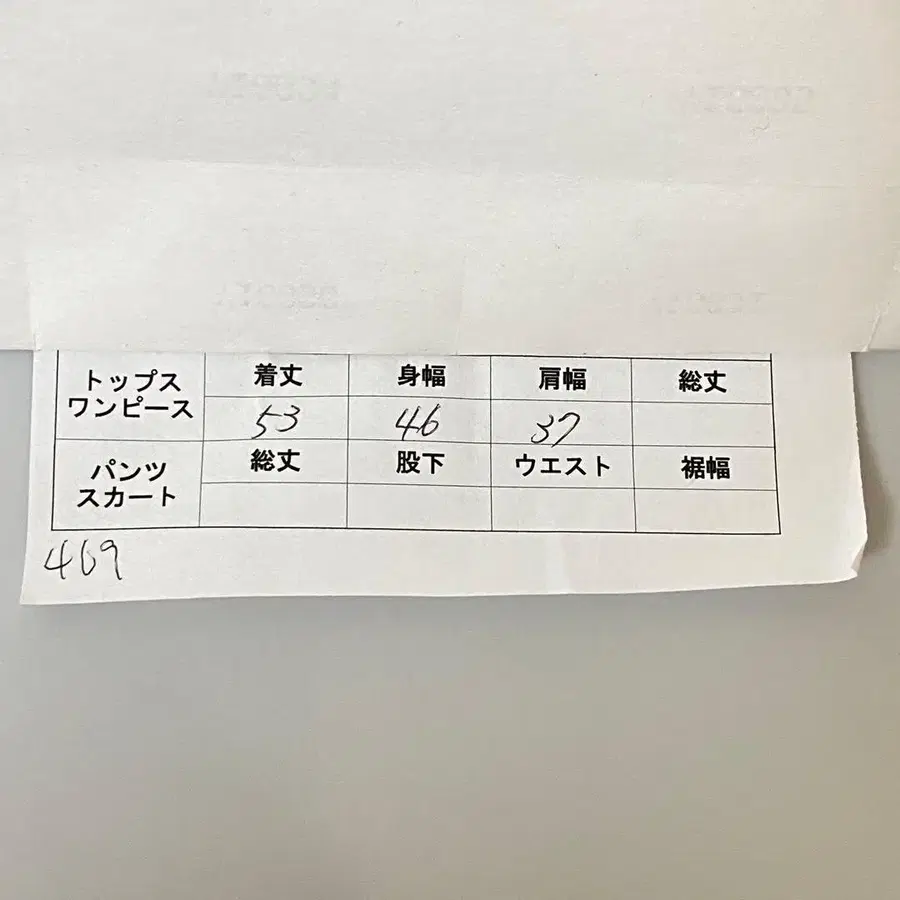 トップス
ワンピース
着丈 身幅 肩幅 総丈
53 46 37
パンツ
スカート
総丈 股下 ウエスト 裾幅
469